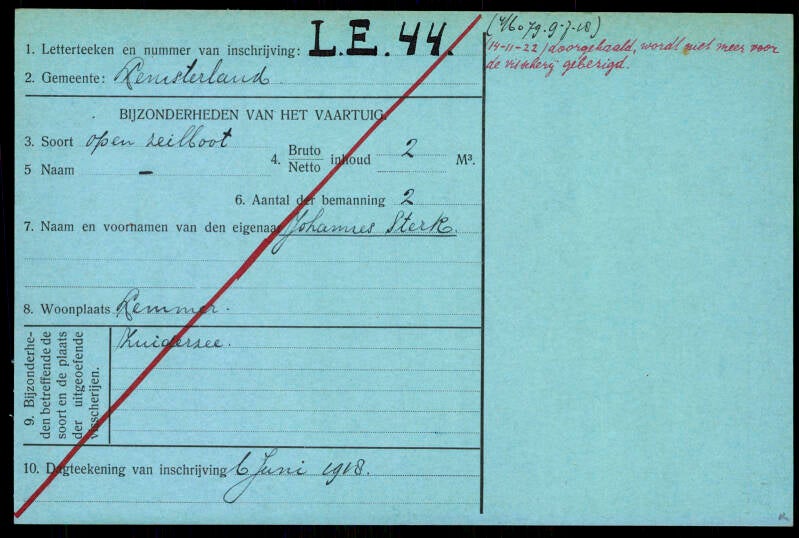 1. Letterteeken en nummer van inschrijving: L.E. 44.
2. Gemeente: Lemsterland
BIJZONDERHEDEN VAN HET VAARTUIG.
3. Soort open zeilboot
4. Bruto Netto inhoud 2 M³.
5 Naam –
6. Aantal der bemanning 2
7. Naam en voornamen van den eigenaar Johannes Sterk.
8. Woonplaats Lemmer.
9. Bijzonderhe-
den betreffende de
soort en de plaats
der uitgeoefende
visscherijen.
Zuiderzee.
10. Dagteekening van inschrijving 6 Juni 1918.
79. 9-7-18)
(14-11-22) doorgehaald, wordt niet meer voor
de visscherij gebezigd.